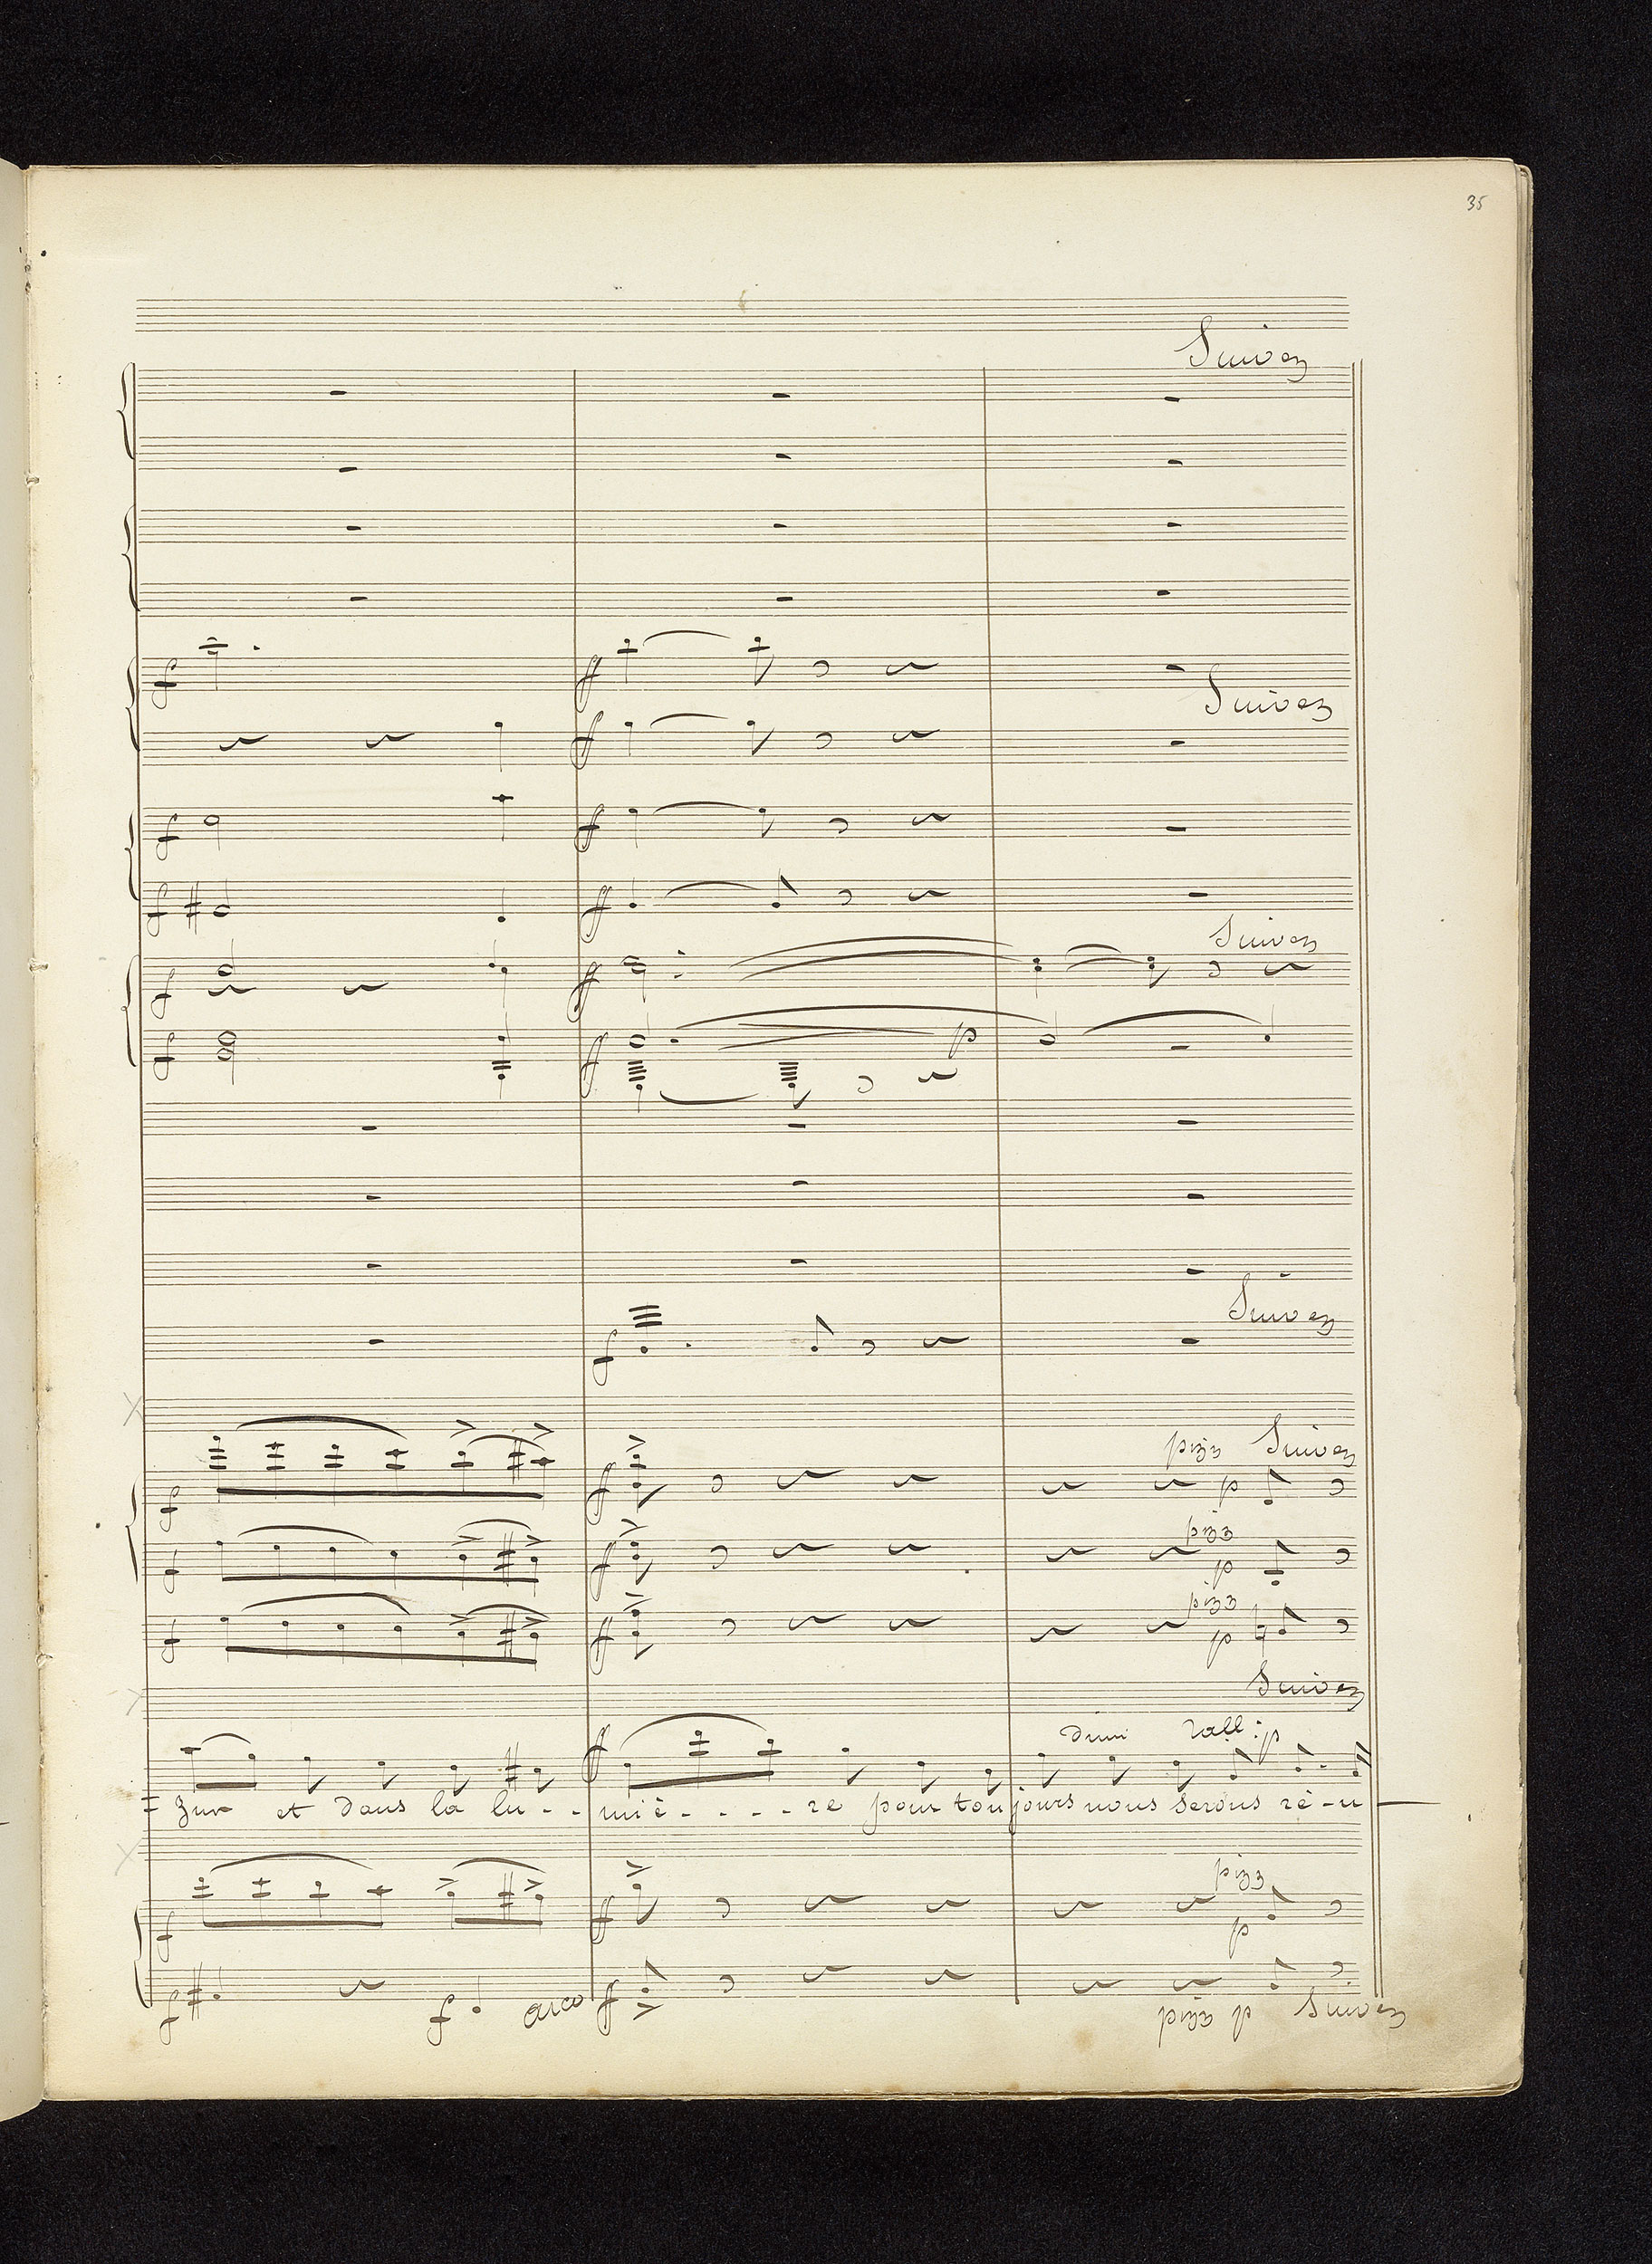 35
Suivez
f ff
Suivez
ff
f ff
f ff
Suivez
f ff
f ff p
Suivez
f
pizz Suivez
f ff p
pizz
f ff p
pizz
f ff p
Suivez
ff dim rall: p
= zur et dans la lu - - miè - - - - re pour toujours nous serons ré - u
pizz
f ff p
f f arco ff pizz p Suivez